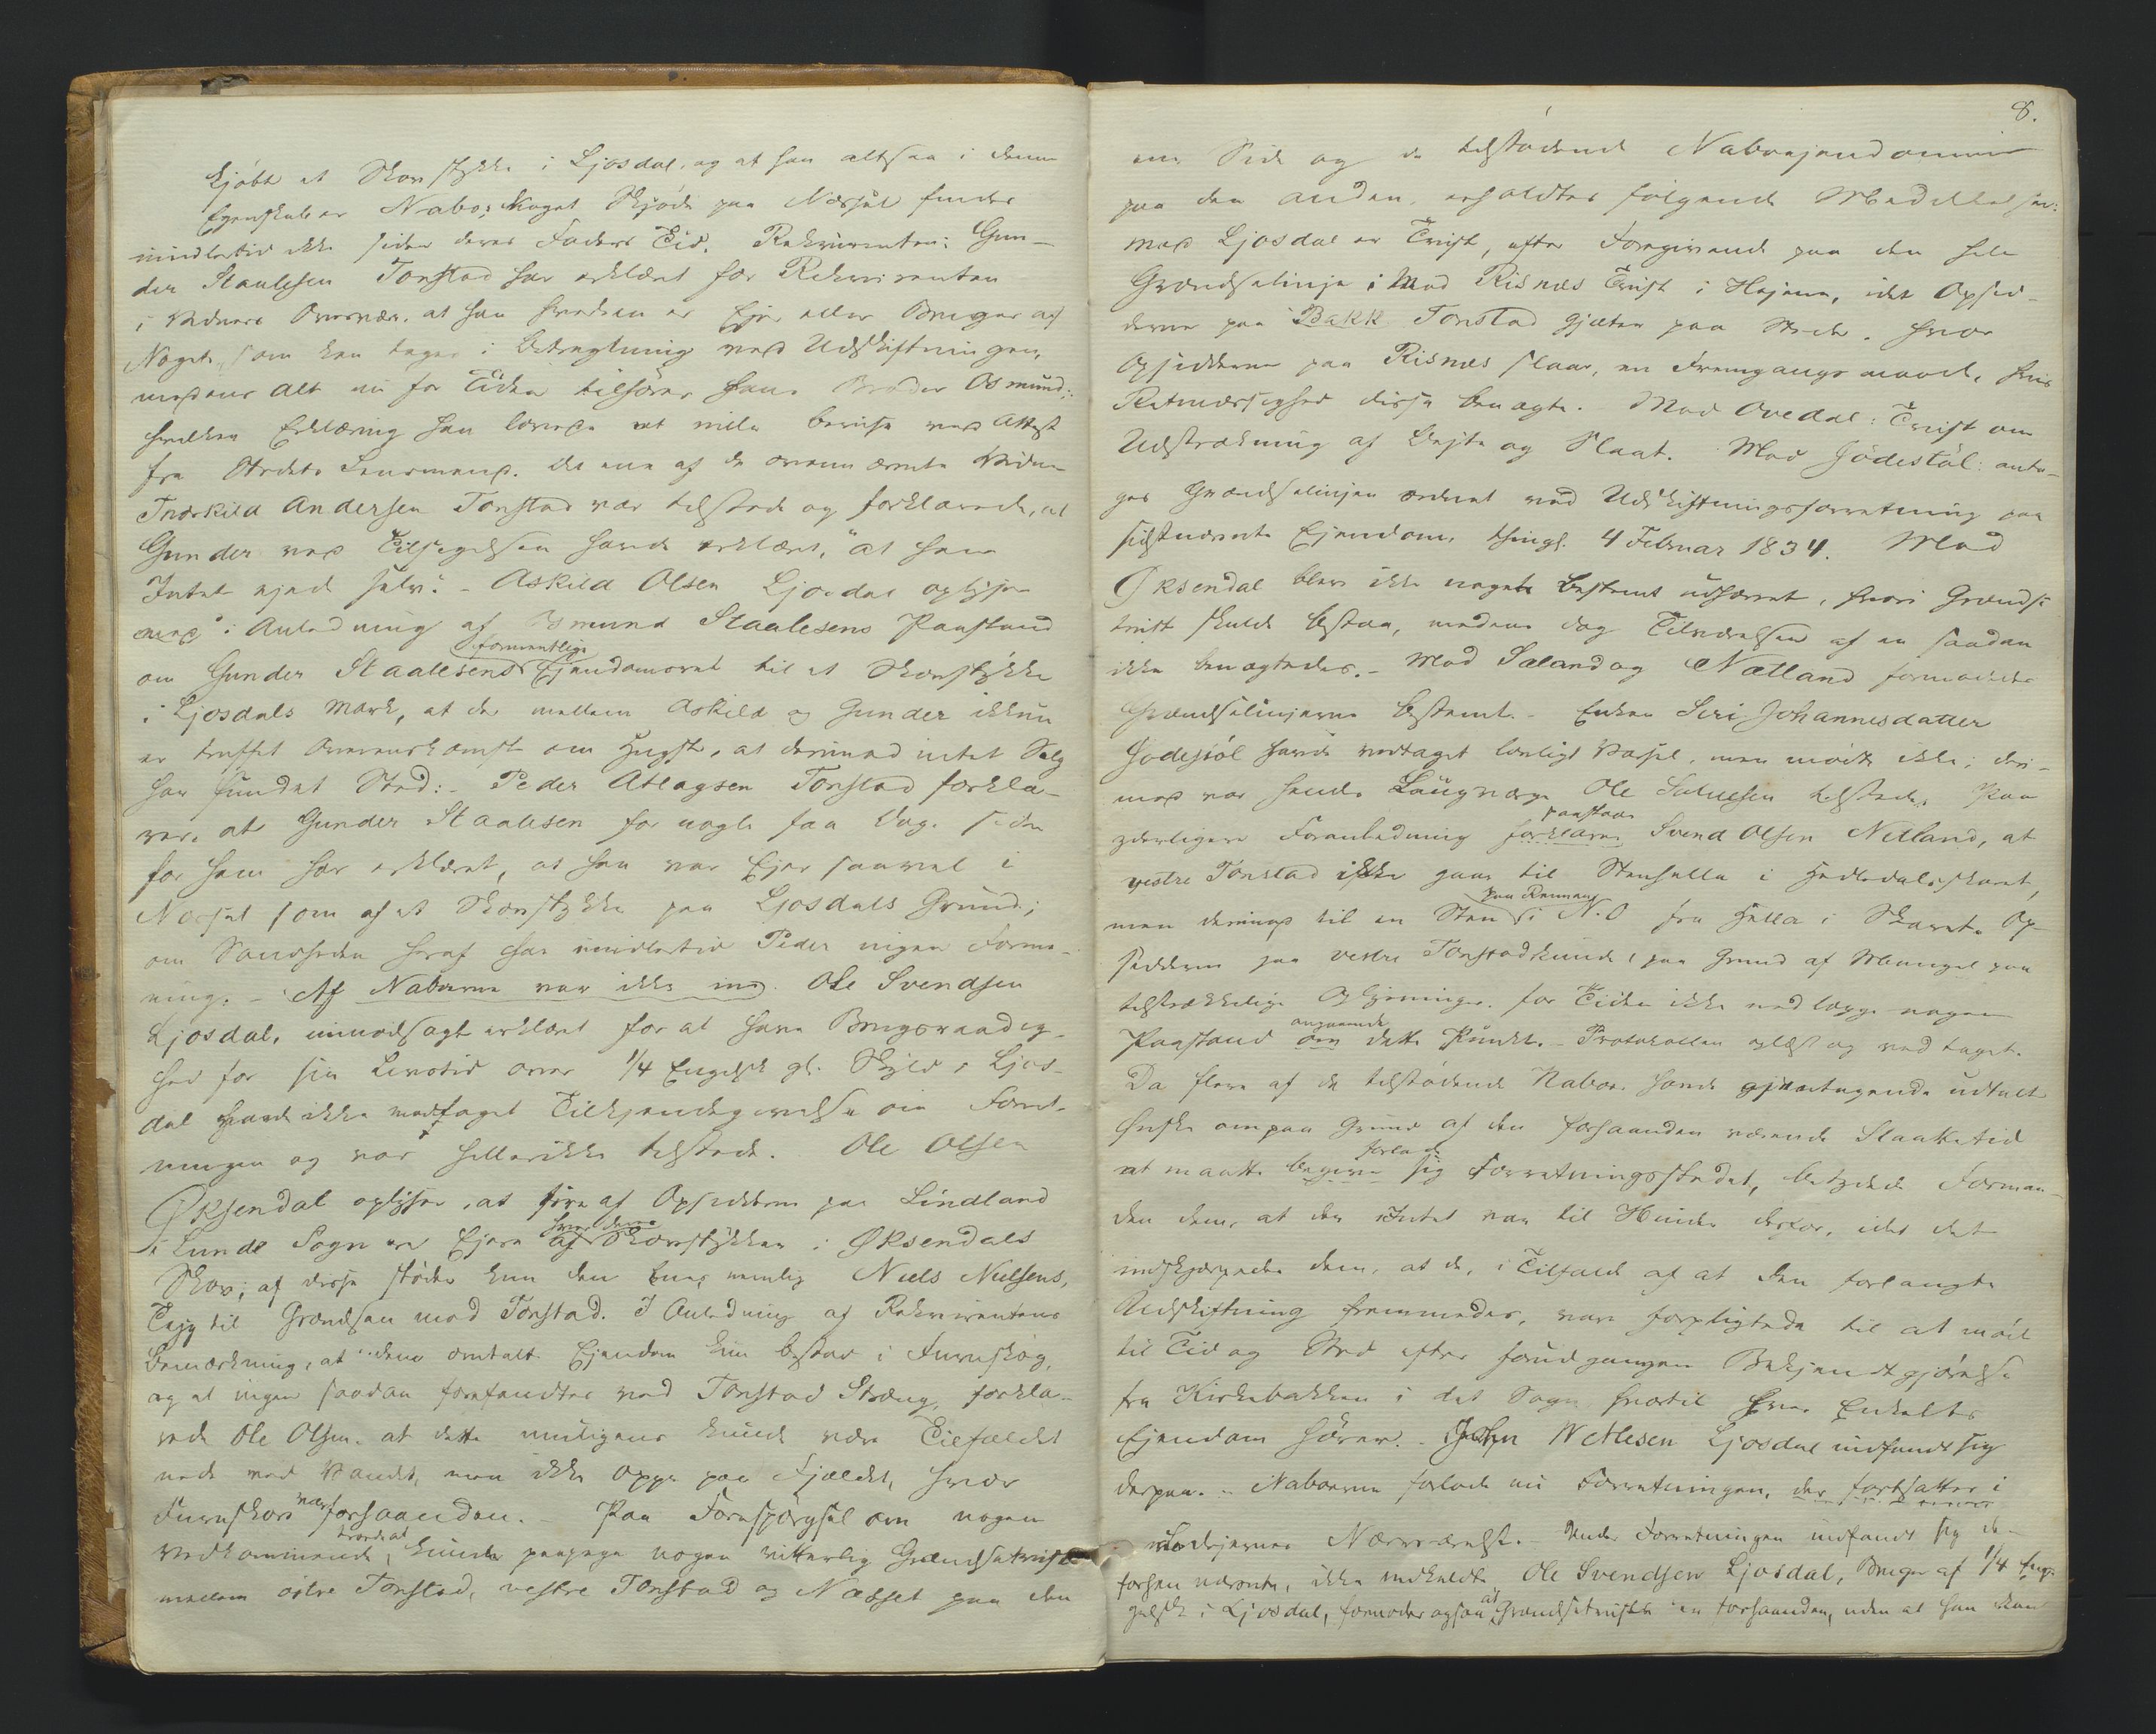 kjøbt et Skovstykke i Ljosdal, og at han altsaa i denne
Egenskab er Nabo; Noget Skjøde paa Nedsæl findes
imidlertid ikke siden deres Faders Tid. Rekvirenten: Gun-
der Staalesen Tonstad har erklæret for Rekvirenten
i Vidners Overvær, at han hverken er Ejer eller Bruger af
Noget, som kan tages i Betragtning ved Udskiftningen,
medens alt nu for Tiden tilhører hans Broder Osmund;
hvilken Erklæring han lovede at ville bevise med Attest
fra Stedets Lensmand. Det ene af de ovennævnte Vidner
Thorkild Andersen Tonstad var tilstede og forklarede, at
Gunder ved Tilsigelsen havde erklæret, "at han
Intet ejede selv." - Askild Olsen Ljosdal oplyser
i Anledning af Osmund Staalesens Paastand
om Gunder Staalesens formentlige Ejendomsret til et Skovstykke
i Ljosdals Mark, at der mellem Askild og Gunder ikkun
er truffet Overenskomst om Hugst, at derimod intet Salg
har fundet Sted: - Peder Atlagsen Tonstad forkla-
rer, at Gunder Staalesen for nogle faa Dage siden
for ham har erklæret, at han var Ejer saavel i
Nedsæl som af et Skovstykke paa Ljosdals Grund;
om Sandheden heraf har imidlertid Peder ingen Forme-
ning. - Af Naboerne var ikke mødt Ole Svendsen
Ljosdal, imodsagt erklæret for at have Brugsraadig-
hed for sin Levetid over 1/4 Engelsk gl. Skyld i Ljos-
dal havde ikke modtaget Tilkjendegivelse om Forret-
ningen og var heller ikke tilstede. Ole Olsen
Øksendal oplyser, at fire af Opsidderne paa Lindland
i Lunde Sogn ere Ejere af hver deres Skovstykker i Øksendals
Skov; af disse støder kun den ene, nemlig Niels Nielsens,
Teig til Grændsen mod Tonstad. I Anledning af Rekvirentens
Bemærkning, at den omtalte Ejendom kun bestod i Furuskog,
og at ingen saadan forefandtes ved Tonstad Strøug, forkla-
rede Ole Olsen, at dette muligens kunde være Tilfældet
nede ved Vandet, men ikke oppe paa Fjældet, hvor
Furuskov var forhaanden. - Paa Forespørgsel om nogen
Vedkommende troede at kunde paapege nogen vitterlig Grændsetvist
mellem østre Tonstad, vestre Tonstad og Nedset paa den
8.
ene Side og de tilstødende Naboejendomme
paa den anden, erholdtes følgende Meddelelser:
med Ljosdal er Tvist, efter Foregivende paa den hele
Grændselinje; Mod Risnes Tvist i Hejene, idet Opsid-
derne paa Bakk Tonstad gjæter paa Steder, hvor
Opsidderne paa Risnes slaar, en Fremgangsmaade, hvis
Retmæssighed disse benægte. Mod Ovedal: Tvist om
Udstrækning af Bejte og Slaat. Mod Jödestöl: anta-
ges Grændselinjen ordnet ved Udskiftningsforretning paa
sidstnævnte Ejendom, thingl. 4 Februar 1834. Mod
Øksendal blev ikke noget bestemt udhævet, hvori Grændse
tvist skulde bestaa, medens dog Tilværelsen af en saadan
ikke benægtedes. - Mod Sæland og Netland formodedes
Grændselinjerne bestemt. - Enken Siri Johannesdatter
Jodestöl havde modtaget lovligt Varsel, men mødte ikke; deri-
mod var hendes Laugværge Ole Salvesen tilstede. Paa
yderligere Foranledning forklarer paastaar Svend Olsen Netland, at
vestre Tonstad ikke gaar til Stenhella i Hedledalsskaret,
men derimod til en Sten paa Rennen i N.O fra Hella i Skaret. Op-
sidderne paa vestre Tonstad kunde, paa Grund af Mangel paa
tilstrækkelige Oplysninger, for Tiden ikke nedlægge nogen
Paastand om angaaende dette Punkt. - Protokollen oplæst og vedtaget.
Da flere af de tilstødende Naboer havde gjentagende udtalt
Ønske om paa Grund af den forhaanden værende Slaattetid
at maatte begive forlade sig Forretningsstedet, betydede Forman-
den dem, at der Intet var til Hinder derfor, idet det
indskjærpedes dem, at de, i Tilfælde af at den forlangte
Udskiftning fremmedes, vare forpligtede til at møde
til Tid og Sted efter forudgangen Bekjendtgjørelse
fra Kirkebakken i det Sogn hvortil hver Enkeltes
Ejendom hører. - John Netlesen Ljosdal indfandt sig
derpaa. - Naboerne forlode nu Forretningen, der fortsattes i
Lodejernes Nærværelse. Under Forretningen indfandt sig den
forhen nævnte, ikke indkaldte Ole Svendsen Ljosdal, Bruger af 1/4 Eng-
gelsk i Ljosdal, formoder ogsaa at Grændsetviste er forhaanden, uden at han kan